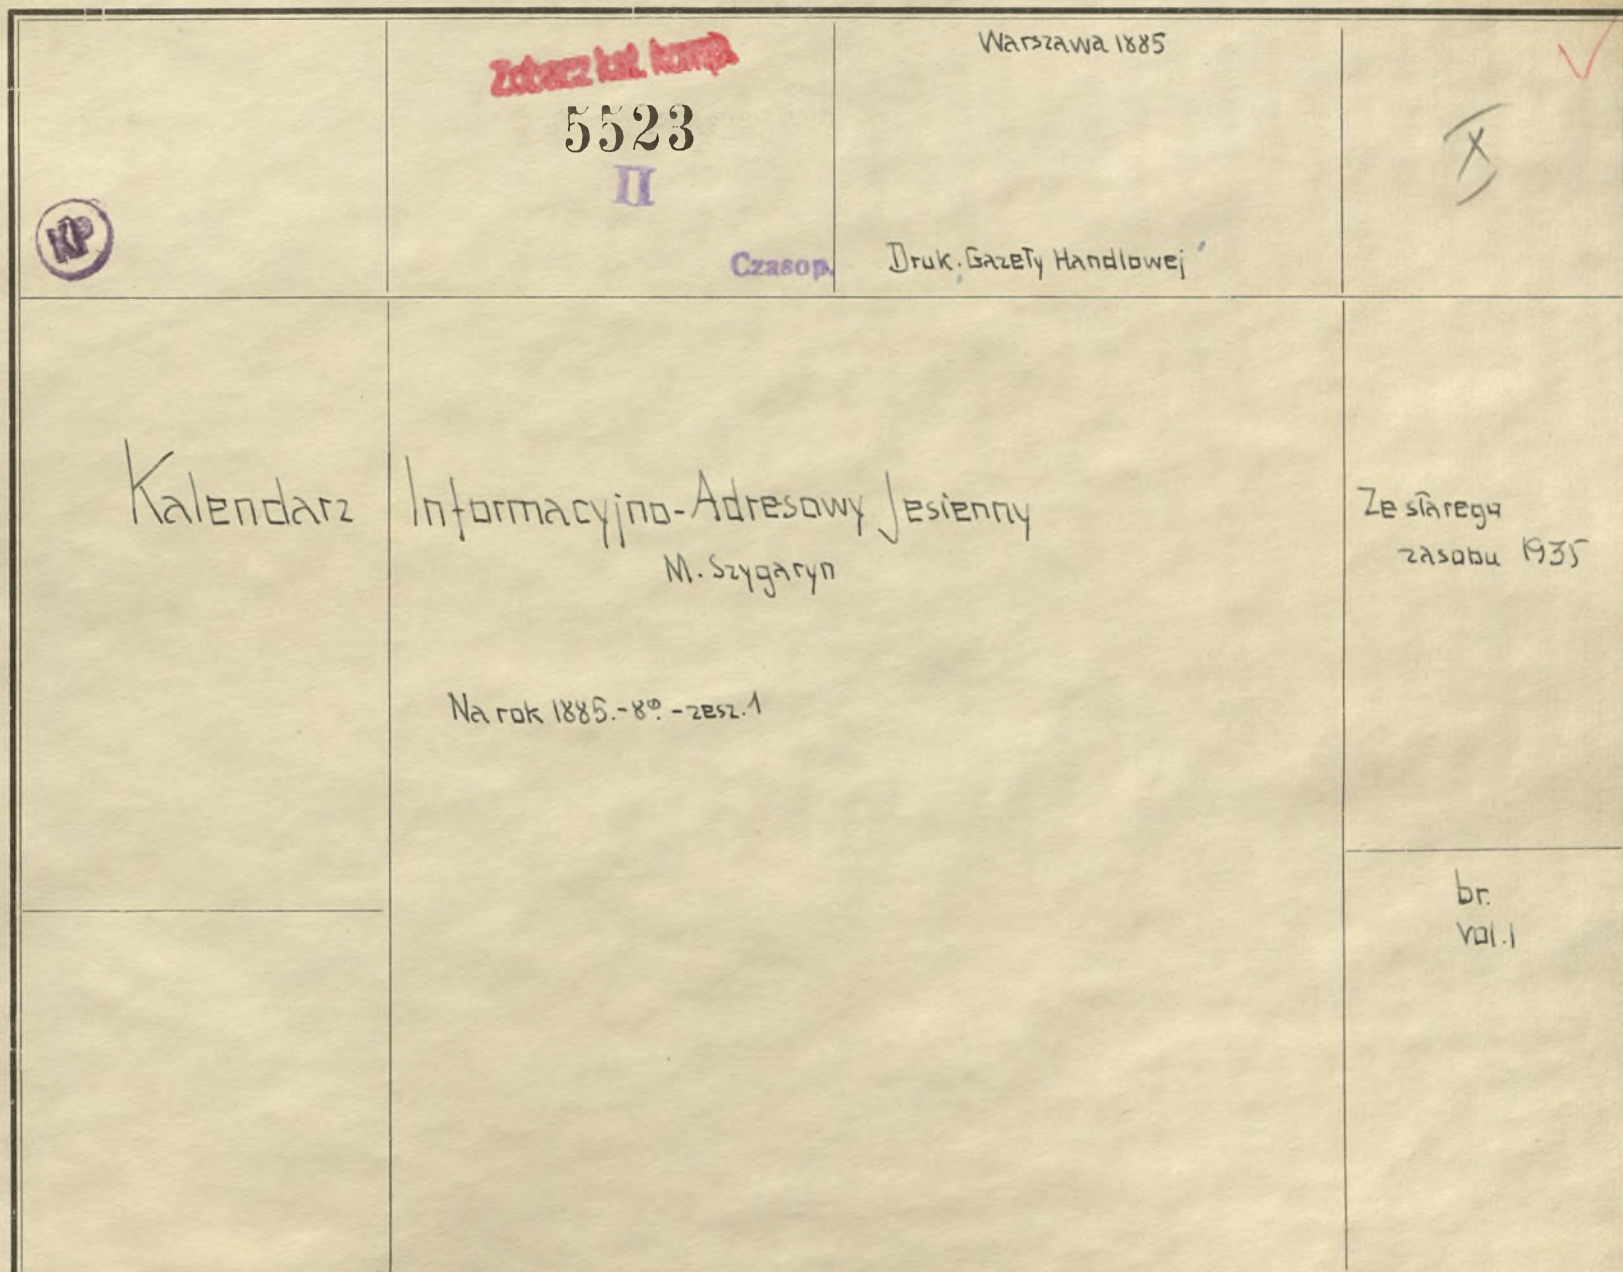 Zobacz kat. komp.
5523
II
Czasop.
Warszawa 1885
Druk. „Gazety Handlowej”
X
KP
Kalendarz Informacyjno-Adresowy Jesienny
M. Szygaryn
Na rok 1885.-8º.-zesz.1
Ze starego
zasobu 1935
br.
vol.1